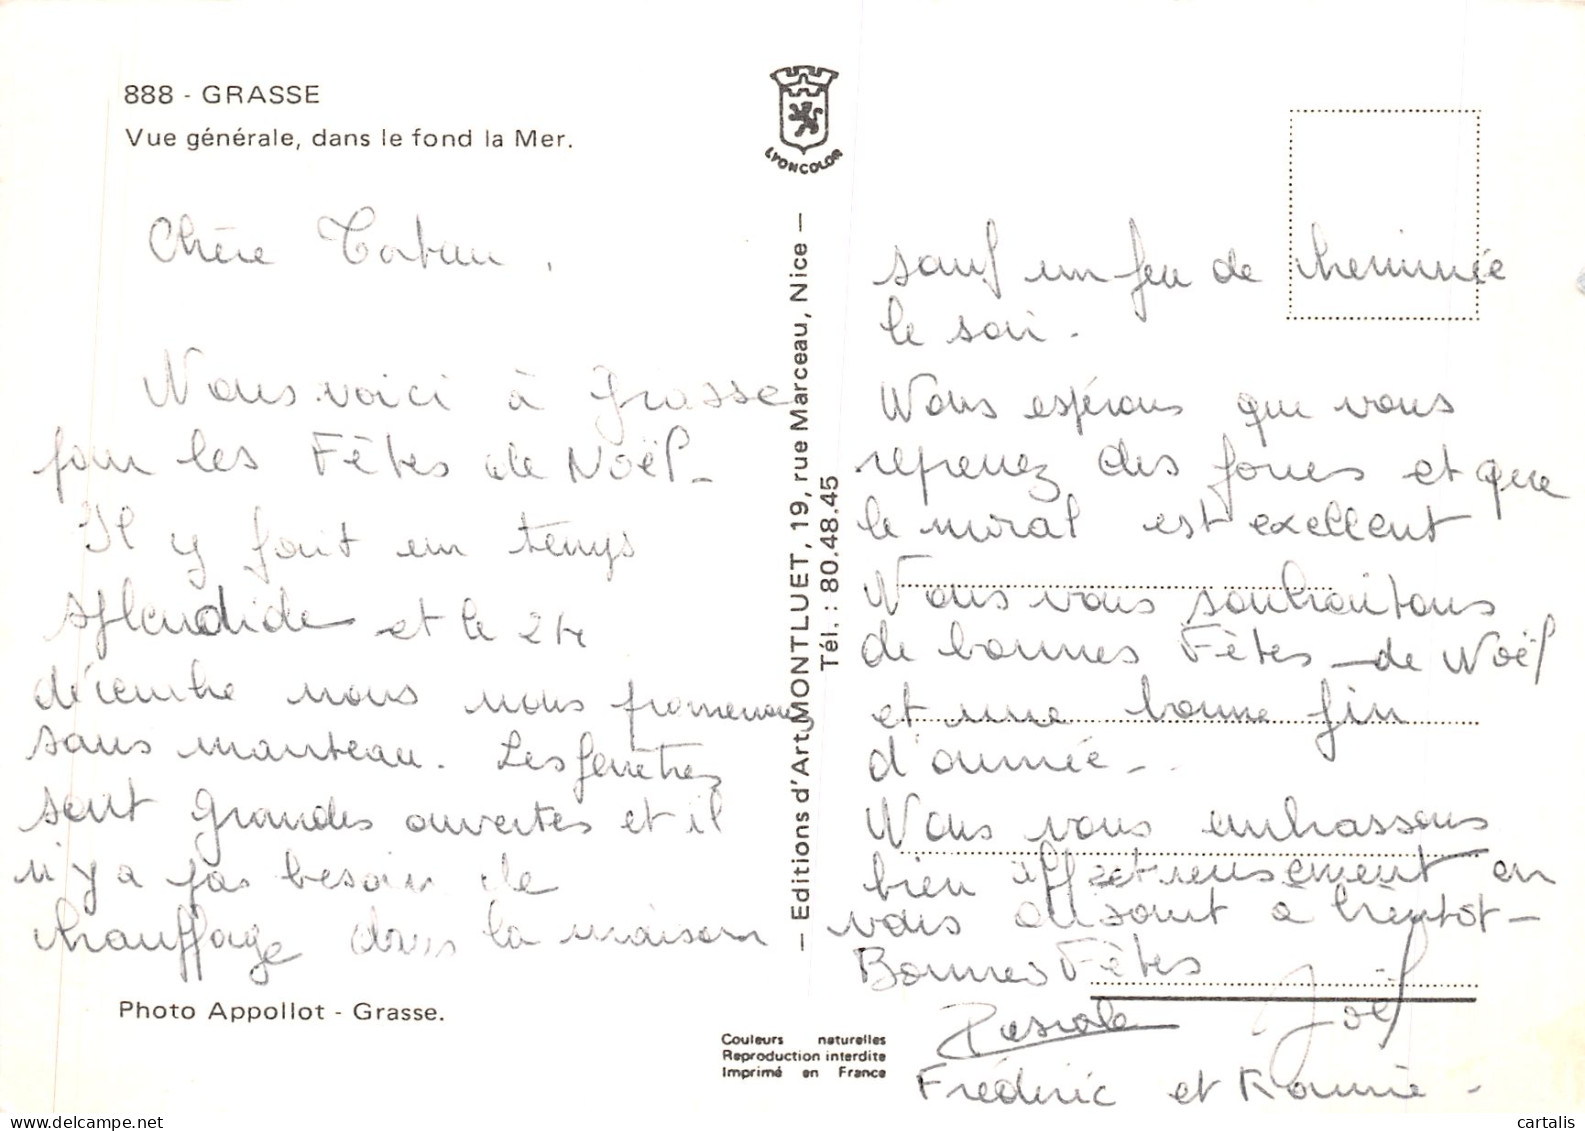 888 - GRASSE
Vue générale, dans le fond la Mer.
LYONCOLOR
Chère
Nous voici à Grasse
pour les Fêtes de Noël -
Il y fait un temps
splendide et le 24
décembre nous nous promenons
sans manteau. Les fenêtres
sont grandes ouvertes et il
n'y a pas besoin de
chauffage dans la maison
Photo Appollot - Grasse.
- Editions d'Art MONTLUET, 19, rue Marceau, Nice -
Tél. : 80.48.45
Couleurs naturelles
Reproduction interdite
Imprimé en France
sauf un feu de cheminée
le soir.
Nous espérons que vous
reprenez des forces et que
le moral est excellent
Nous vous souhaitons
de bonnes Fêtes de Noël
et une bonne fin
d'année -
Nous vous embrassons
bien affectueusement en
vous disant à bientôt -
Bonnes Fêtes
Pascale Joël
Frédéric et
cartalis